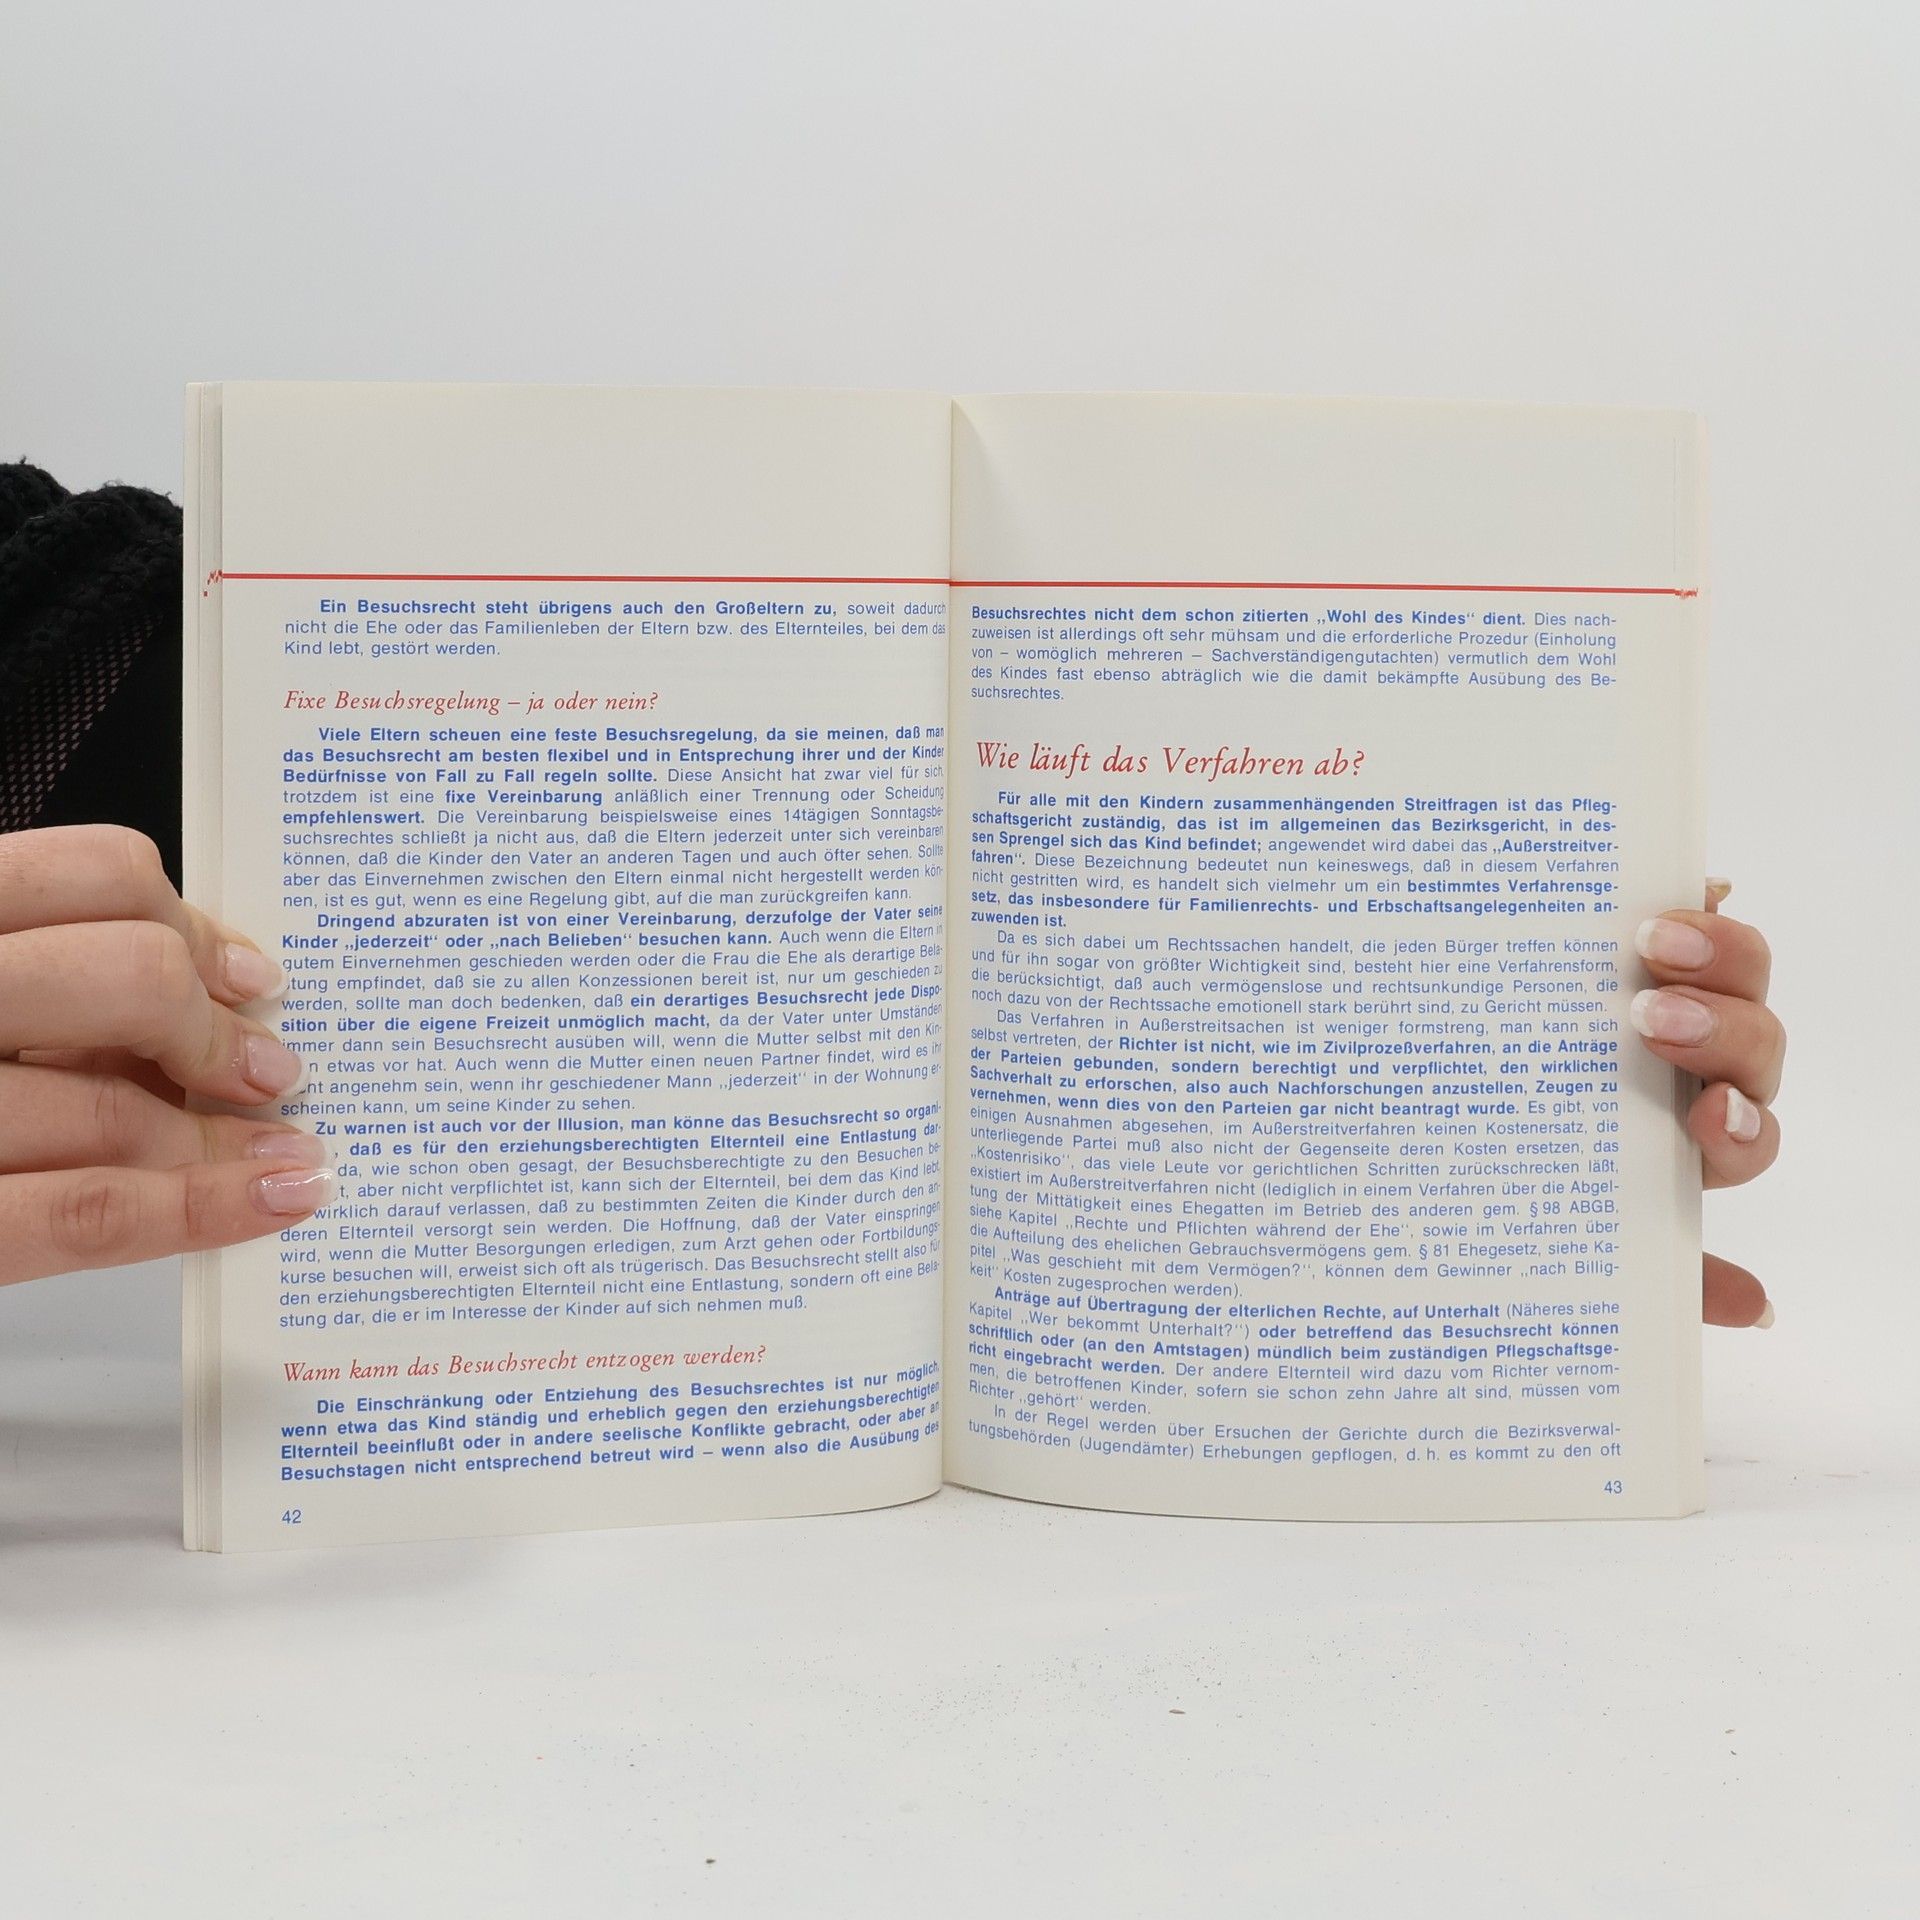 Ein Besuchsrecht steht übrigens auch den Großeltern zu, soweit dadurch
nicht die Ehe oder das Familienleben der Eltern bzw. des Elternteiles, bei dem das
Kind lebt, gestört werden.
Fixe Besuchsregelung – ja oder nein?
Viele Eltern scheuen eine feste Besuchsregelung, da sie meinen, daß man
das Besuchsrecht am besten flexibel und in Entsprechung ihrer und der Kinder
Bedürfnisse von Fall zu Fall regeln sollte. Diese Ansicht hat zwar viel für sich,
trotzdem ist eine fixe Vereinbarung anläßlich einer Trennung oder Scheidung
empfehlenswert. Die Vereinbarung beispielsweise eines 14tägigen Sonntagsbe-
suchsrechtes schließt ja nicht aus, daß die Eltern jederzeit unter sich vereinbaren
können, daß die Kinder den Vater an anderen Tagen und auch öfter sehen. Sollte
aber das Einvernehmen zwischen den Eltern einmal nicht hergestellt werden kön-
nen, ist es gut, wenn es eine Regelung gibt, auf die man zurückgreifen kann.
Dringend abzuraten ist von einer Vereinbarung, derzufolge der Vater seine
Kinder „jederzeit“ oder „nach Belieben“ besuchen kann. Auch wenn die Eltern in
gutem Einvernehmen geschieden werden oder die Frau die Ehe als derartige Bela-
stung empfindet, daß sie zu allen Konzessionen bereit ist, nur um geschieden zu
werden, sollte man doch bedenken, daß ein derartiges Besuchsrecht jede Dispo-
sition über die eigene Freizeit unmöglich macht, da der Vater unter Umständen
immer dann sein Besuchsrecht ausüben will, wenn die Mutter selbst mit den Kin-
etwas vor hat. Auch wenn die Mutter einen neuen Partner findet, wird es ihr
angenehm sein, wenn ihr geschiedener Mann „jederzeit“ in der Wohnung er-
scheinen kann, um seine Kinder zu sehen.
Zu warnen ist auch vor der Illusion, man könne das Besuchsrecht so organi-
, daß es für den erziehungsberechtigten Elternteil eine Entlastung dar-
da, wie schon oben gesagt, der Besuchsberechtigte zu den Besuchen be-
t, aber nicht verpflichtet ist, kann sich der Elternteil, bei dem das Kind lebt,
wirklich darauf verlassen, daß zu bestimmten Zeiten die Kinder durch den an-
deren Elternteil versorgt sein werden. Die Hoffnung, daß der Vater einspringen
wird, wenn die Mutter Besorgungen erledigen, zum Arzt gehen oder Fortbildungs-
kurse besuchen will, erweist sich oft als trügerisch. Das Besuchsrecht stellt also für
den erziehungsberechtigten Elternteil nicht eine Entlastung, sondern oft eine Bela-
stung dar, die er im Interesse der Kinder auf sich nehmen muß.
Wann kann das Besuchsrecht entzogen werden?
Die Einschränkung oder Entziehung des Besuchsrechtes ist nur möglich,
wenn etwa das Kind ständig und erheblich gegen den erziehungsberechtigten
Elternteil beeinflußt oder in andere seelische Konflikte gebracht, oder aber an
Besuchstagen nicht entsprechend betreut wird – wenn also die Ausübung des
42
Besuchsrechtes nicht dem schon zitierten „Wohl des Kindes“ dient. Dies nach-
zuweisen ist allerdings oft sehr mühsam und die erforderliche Prozedur (Einholung
von – womöglich mehreren – Sachverständigengutachten) vermutlich dem Wohl
des Kindes fast ebenso abträglich wie die damit bekämpfte Ausübung des Be-
suchsrechtes.
Wie läuft das Verfahren ab?
Für alle mit den Kindern zusammenhängenden Streitfragen ist das Pfleg-
schaftsgericht zuständig, das ist im allgemeinen das Bezirksgericht, in des-
sen Sprengel sich das Kind befindet; angewendet wird dabei das „Außerstreitver-
fahren“. Diese Bezeichnung bedeutet nun keineswegs, daß in diesem Verfahren
nicht gestritten wird, es handelt sich vielmehr um ein bestimmtes Verfahrensge-
setz, das insbesondere für Familienrechts- und Erbschaftsangelegenheiten an-
zuwenden ist.
Da es sich dabei um Rechtssachen handelt, die jeden Bürger treffen können
und für ihn sogar von größter Wichtigkeit sind, besteht hier eine Verfahrensform,
die berücksichtigt, daß auch vermögenslose und rechtsunkundige Personen, die
noch dazu von der Rechtssache emotionell stark berührt sind, zu Gericht müssen.
Das Verfahren in Außerstreitsachen ist weniger formstreng, man kann sich
selbst vertreten, der Richter ist nicht, wie im Zivilprozeßverfahren, an die Anträge
der Parteien gebunden, sondern berechtigt und verpflichtet, den wirklichen
Sachverhalt zu erforschen, also auch Nachforschungen anzustellen, Zeugen zu
vernehmen, wenn dies von den Parteien gar nicht beantragt wurde. Es gibt, von
einigen Ausnahmen abgesehen, im Außerstreitverfahren keinen Kostenersatz, die
unterliegende Partei muß also nicht der Gegenseite deren Kosten ersetzen, das
„Kostenrisiko“, das viele Leute vor gerichtlichen Schritten zurückschrecken läßt,
existiert im Außerstreitverfahren nicht (lediglich in einem Verfahren über die Abgel-
tung der Mittätigkeit eines Ehegatten im Betrieb des anderen gem. § 98 ABGB,
siehe Kapitel „Rechte und Pflichten während der Ehe“, sowie im Verfahren über
die Aufteilung des ehelichen Gebrauchsvermögens gem. § 81 Ehegesetz, siehe Ka-
pitel „Was geschieht mit dem Vermögen?“, können dem Gewinner „nach Billig-
keit“ Kosten zugesprochen werden).
Anträge auf Übertragung der elterlichen Rechte, auf Unterhalt (Näheres siehe
Kapitel „Wer bekommt Unterhalt?“) oder betreffend das Besuchsrecht können
schriftlich oder (an den Amtstagen) mündlich beim zuständigen Pflegschaftsge-
richt eingebracht werden. Der andere Elternteil wird dazu vom Richter vernom-
men, die betroffenen Kinder, sofern sie schon zehn Jahre alt sind, müssen vom
Richter „gehört“ werden.
In der Regel werden über Ersuchen der Gerichte durch die Bezirksverwal-
tungsbehörden (Jugendämter) Erhebungen gepflogen, d. h. es kommt zu den oft
43